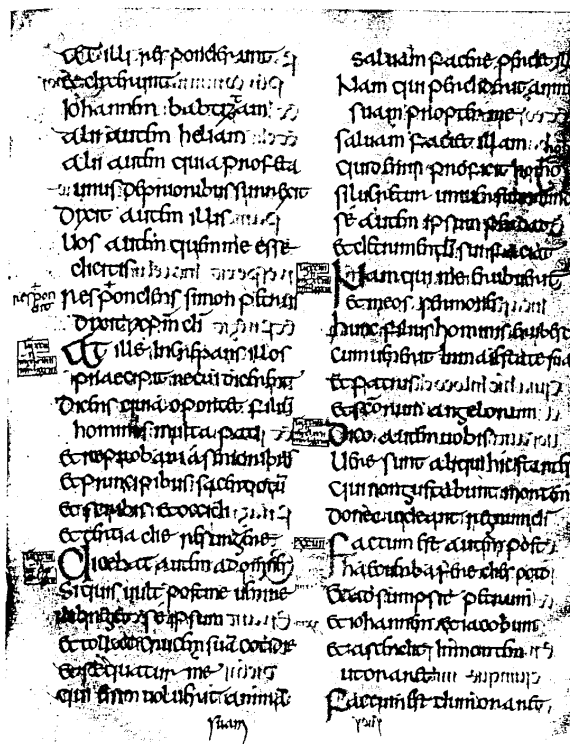 At illi responderunt
et dixerunt
Iohannem babtizam
alii autem heliam
alii autem quia profeta
unus de prioribus surrexit
Dixit autem illis
Uos autem quem me esse
dicitis
respondens simon petrus
dixit xpm di
At ille increpans illos
praecipit ne cui dicerent
Dicens quia oportet filiu
hominis multa pati
et reprobari a senioribus
et principibus sacerdotu
et scribis et occidi
et tertia die resurgere
Dicebat autem ad omnes
Si quis uult post me uenire
abneget se ipsum
et tollat crucem sua cotidie
et sequatur me
qui enim uoluerit anima
suam
saluam facere perdet il
Nam qui perdiderit anim
suam propter me
saluam faciet illam
Quid enim proficit homo
si lucretur uniuersum mundu
se autem ipsum perdat
et detrimentum sui faciat
Nam qui me erubuerit
et meos sermones
hunc filius hominis erubes
cum uenerit in maiestate sua
et patris
et scorum angelorum
Dico autem uobis
Uere sunt aliqui hic stantes
qui non gustabunt mortem
donec uideant regnum di
Factum est autem post
haec uerba fere dies octo
et adsumpsit petrum
et iohannem et iacobum
et ascendit in montem
ut oraret
Factum est dum oraret